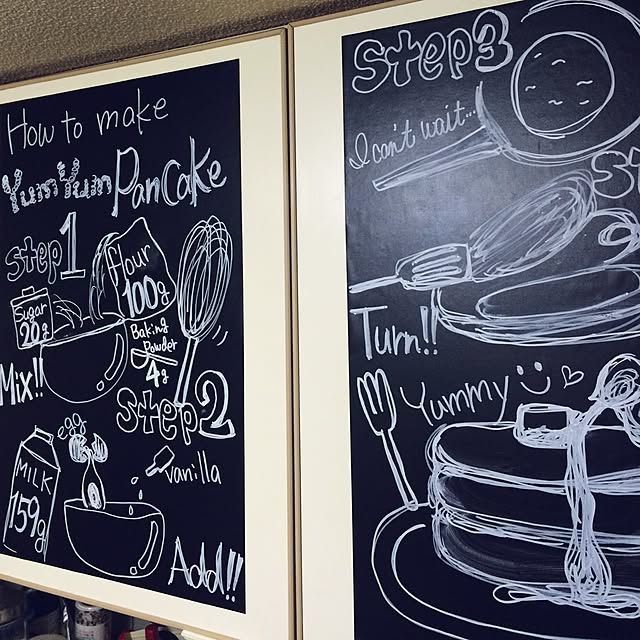 How to make
YumYum Pancake
Step1
flour
100g
Sugar
20g
Baking
Powder
4g
Mix!!
Step2
egg
vanilla
MILK
159g
Add!!
Step3
I can't wait...
St
Turn!!
Yummy